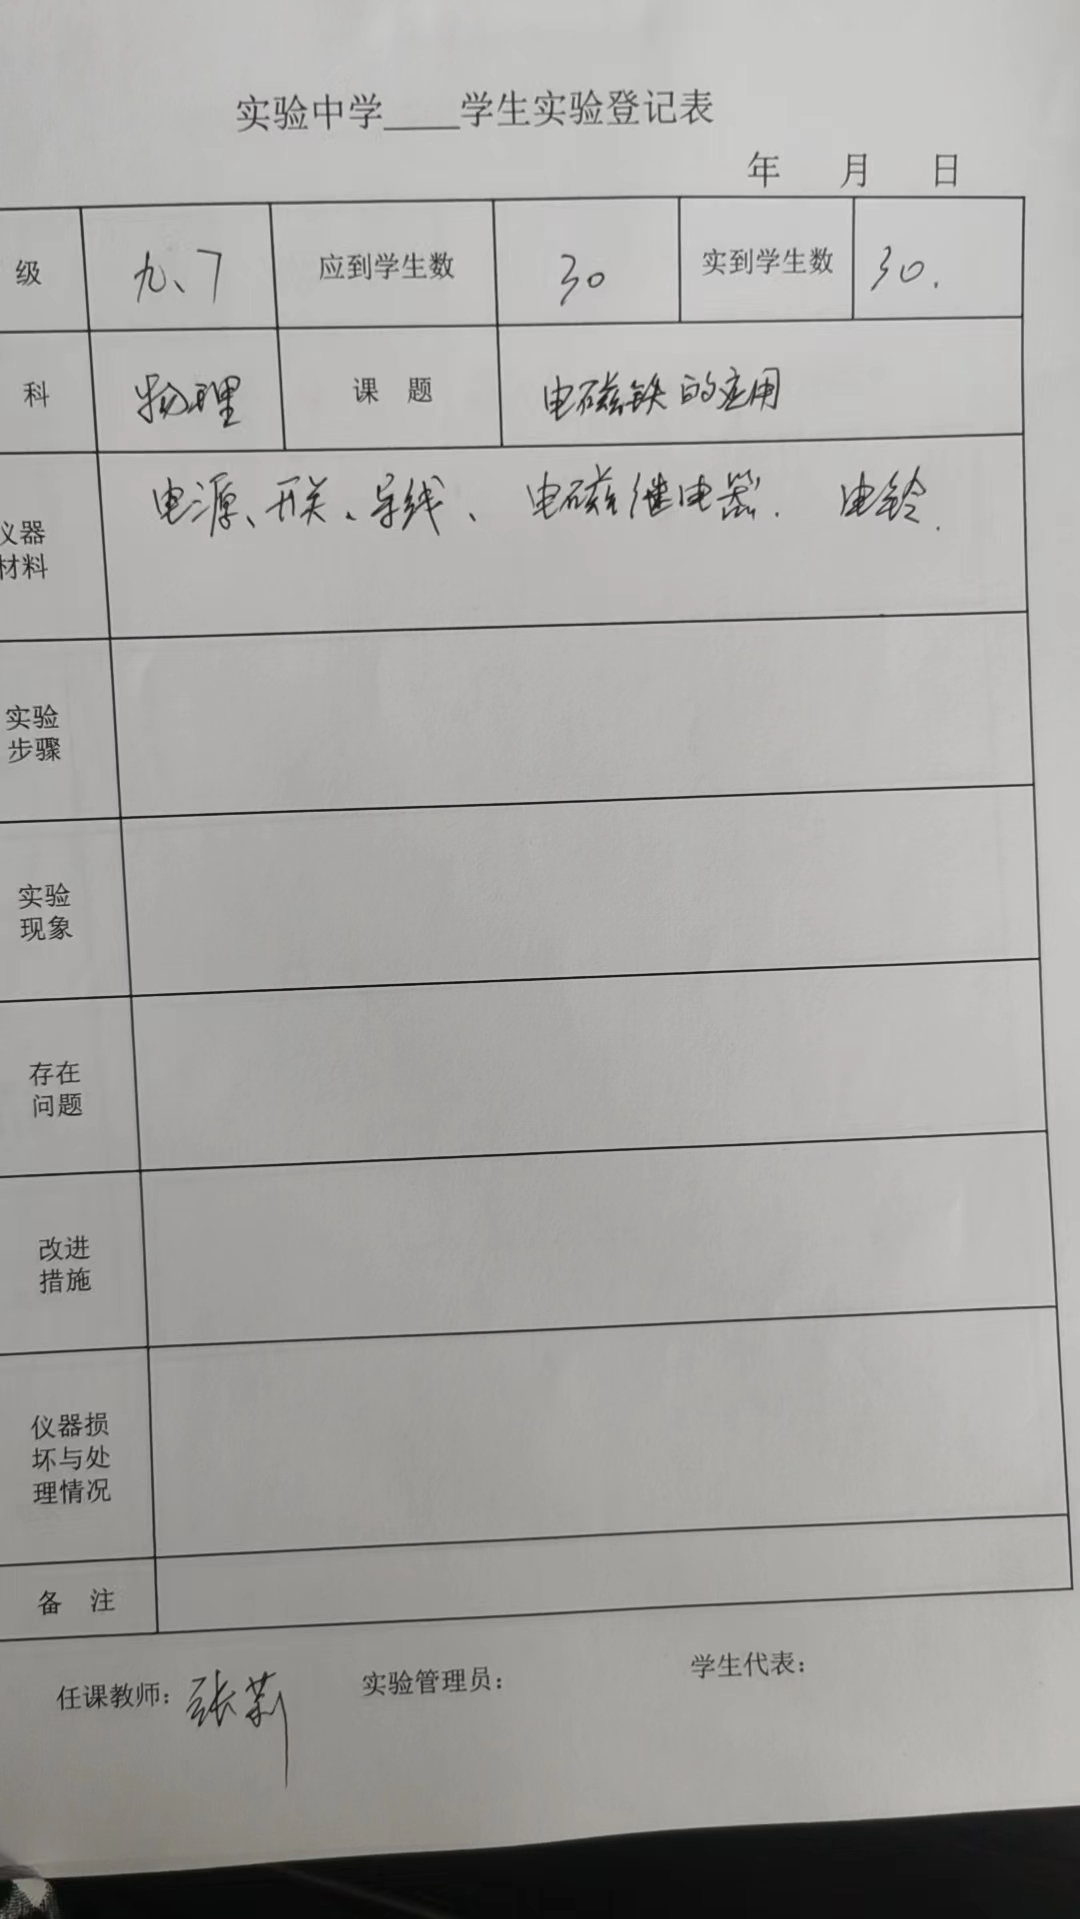 实验中学____学生实验登记表
年 月 日
级 九、7 应到学生数 30 实到学生数 30.
科 物理 课 题 电磁铁的应用
仪器
材料
电源、开关、导线、电磁继电器. 电铃.
实验
步骤
实验
现象
存在
问题
改进
措施
仪器损
坏与处
理情况
备 注
任课教师：张莉 实验管理员： 学生代表：